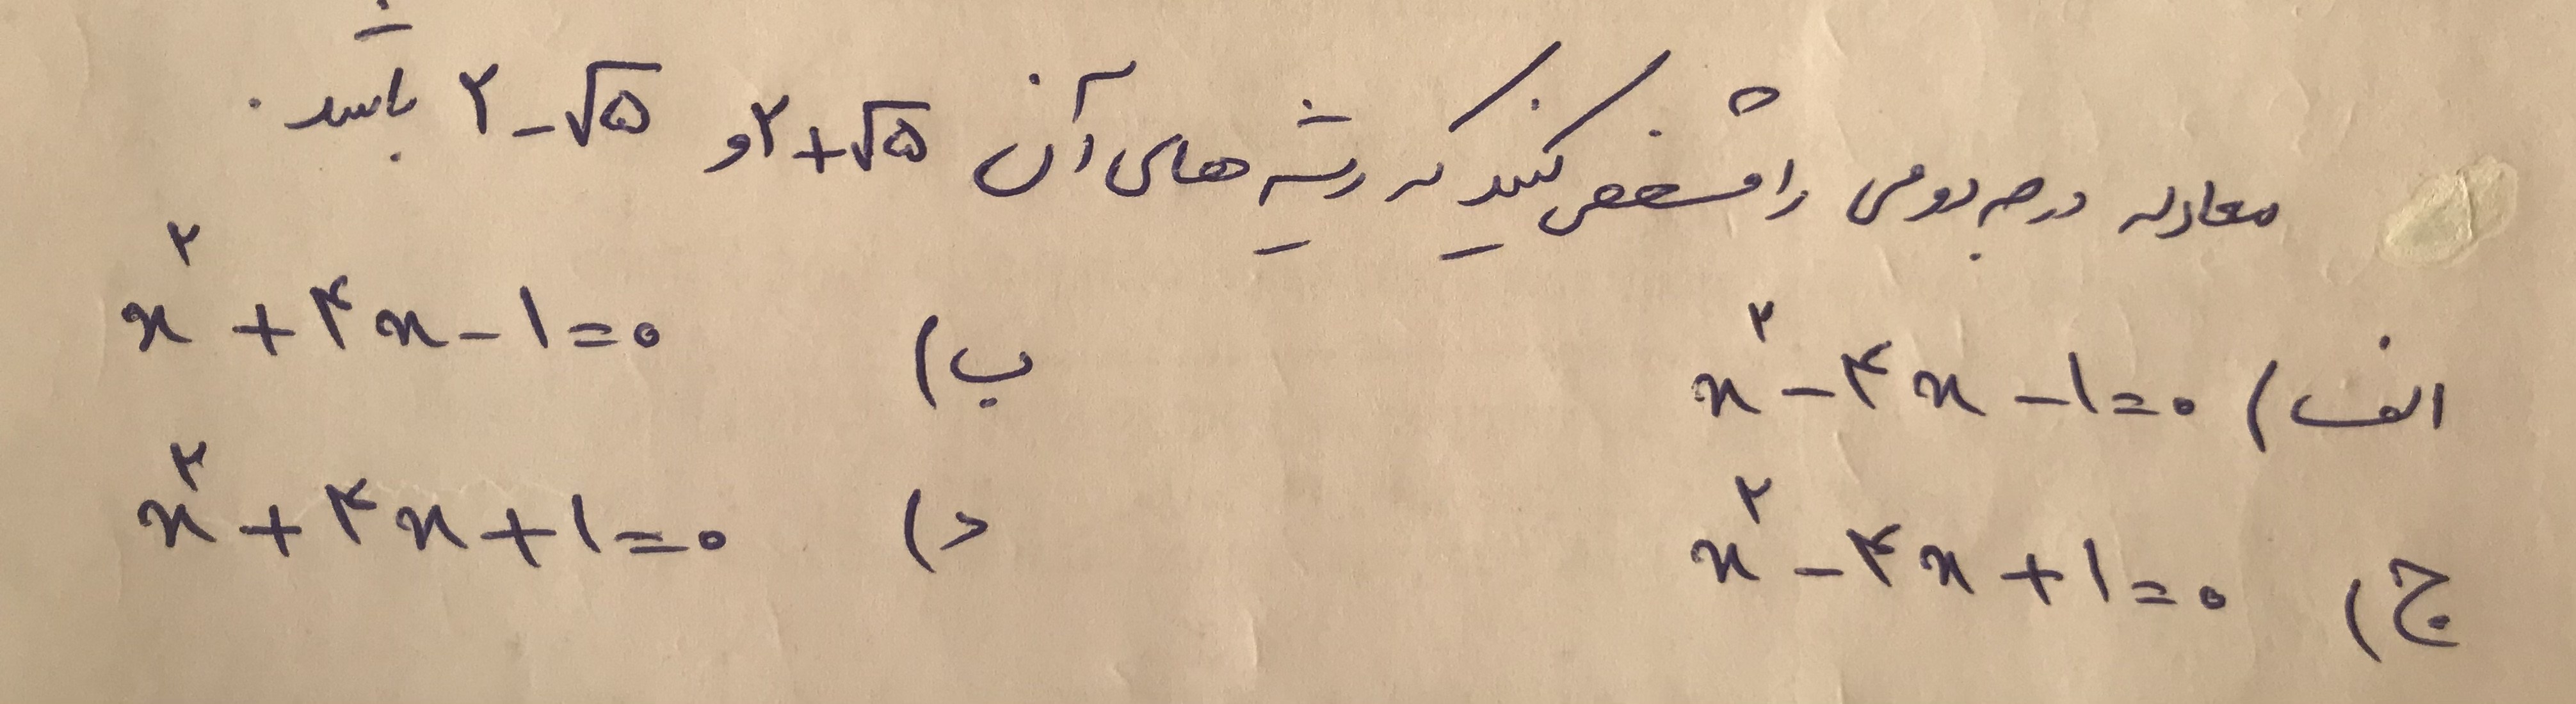 معادله درجه دومی را مشخص کنید که ریشه های آن ۲+√۵ و ۲-√۵ باشد.
الف) x^۲ - ۴x - ۱ = ۰
ب) x^۲ + ۴x - ۱ = ۰
ج) x^۲ - ۴x + ۱ = ۰
د) x^۲ + ۴x + ۱ = ۰